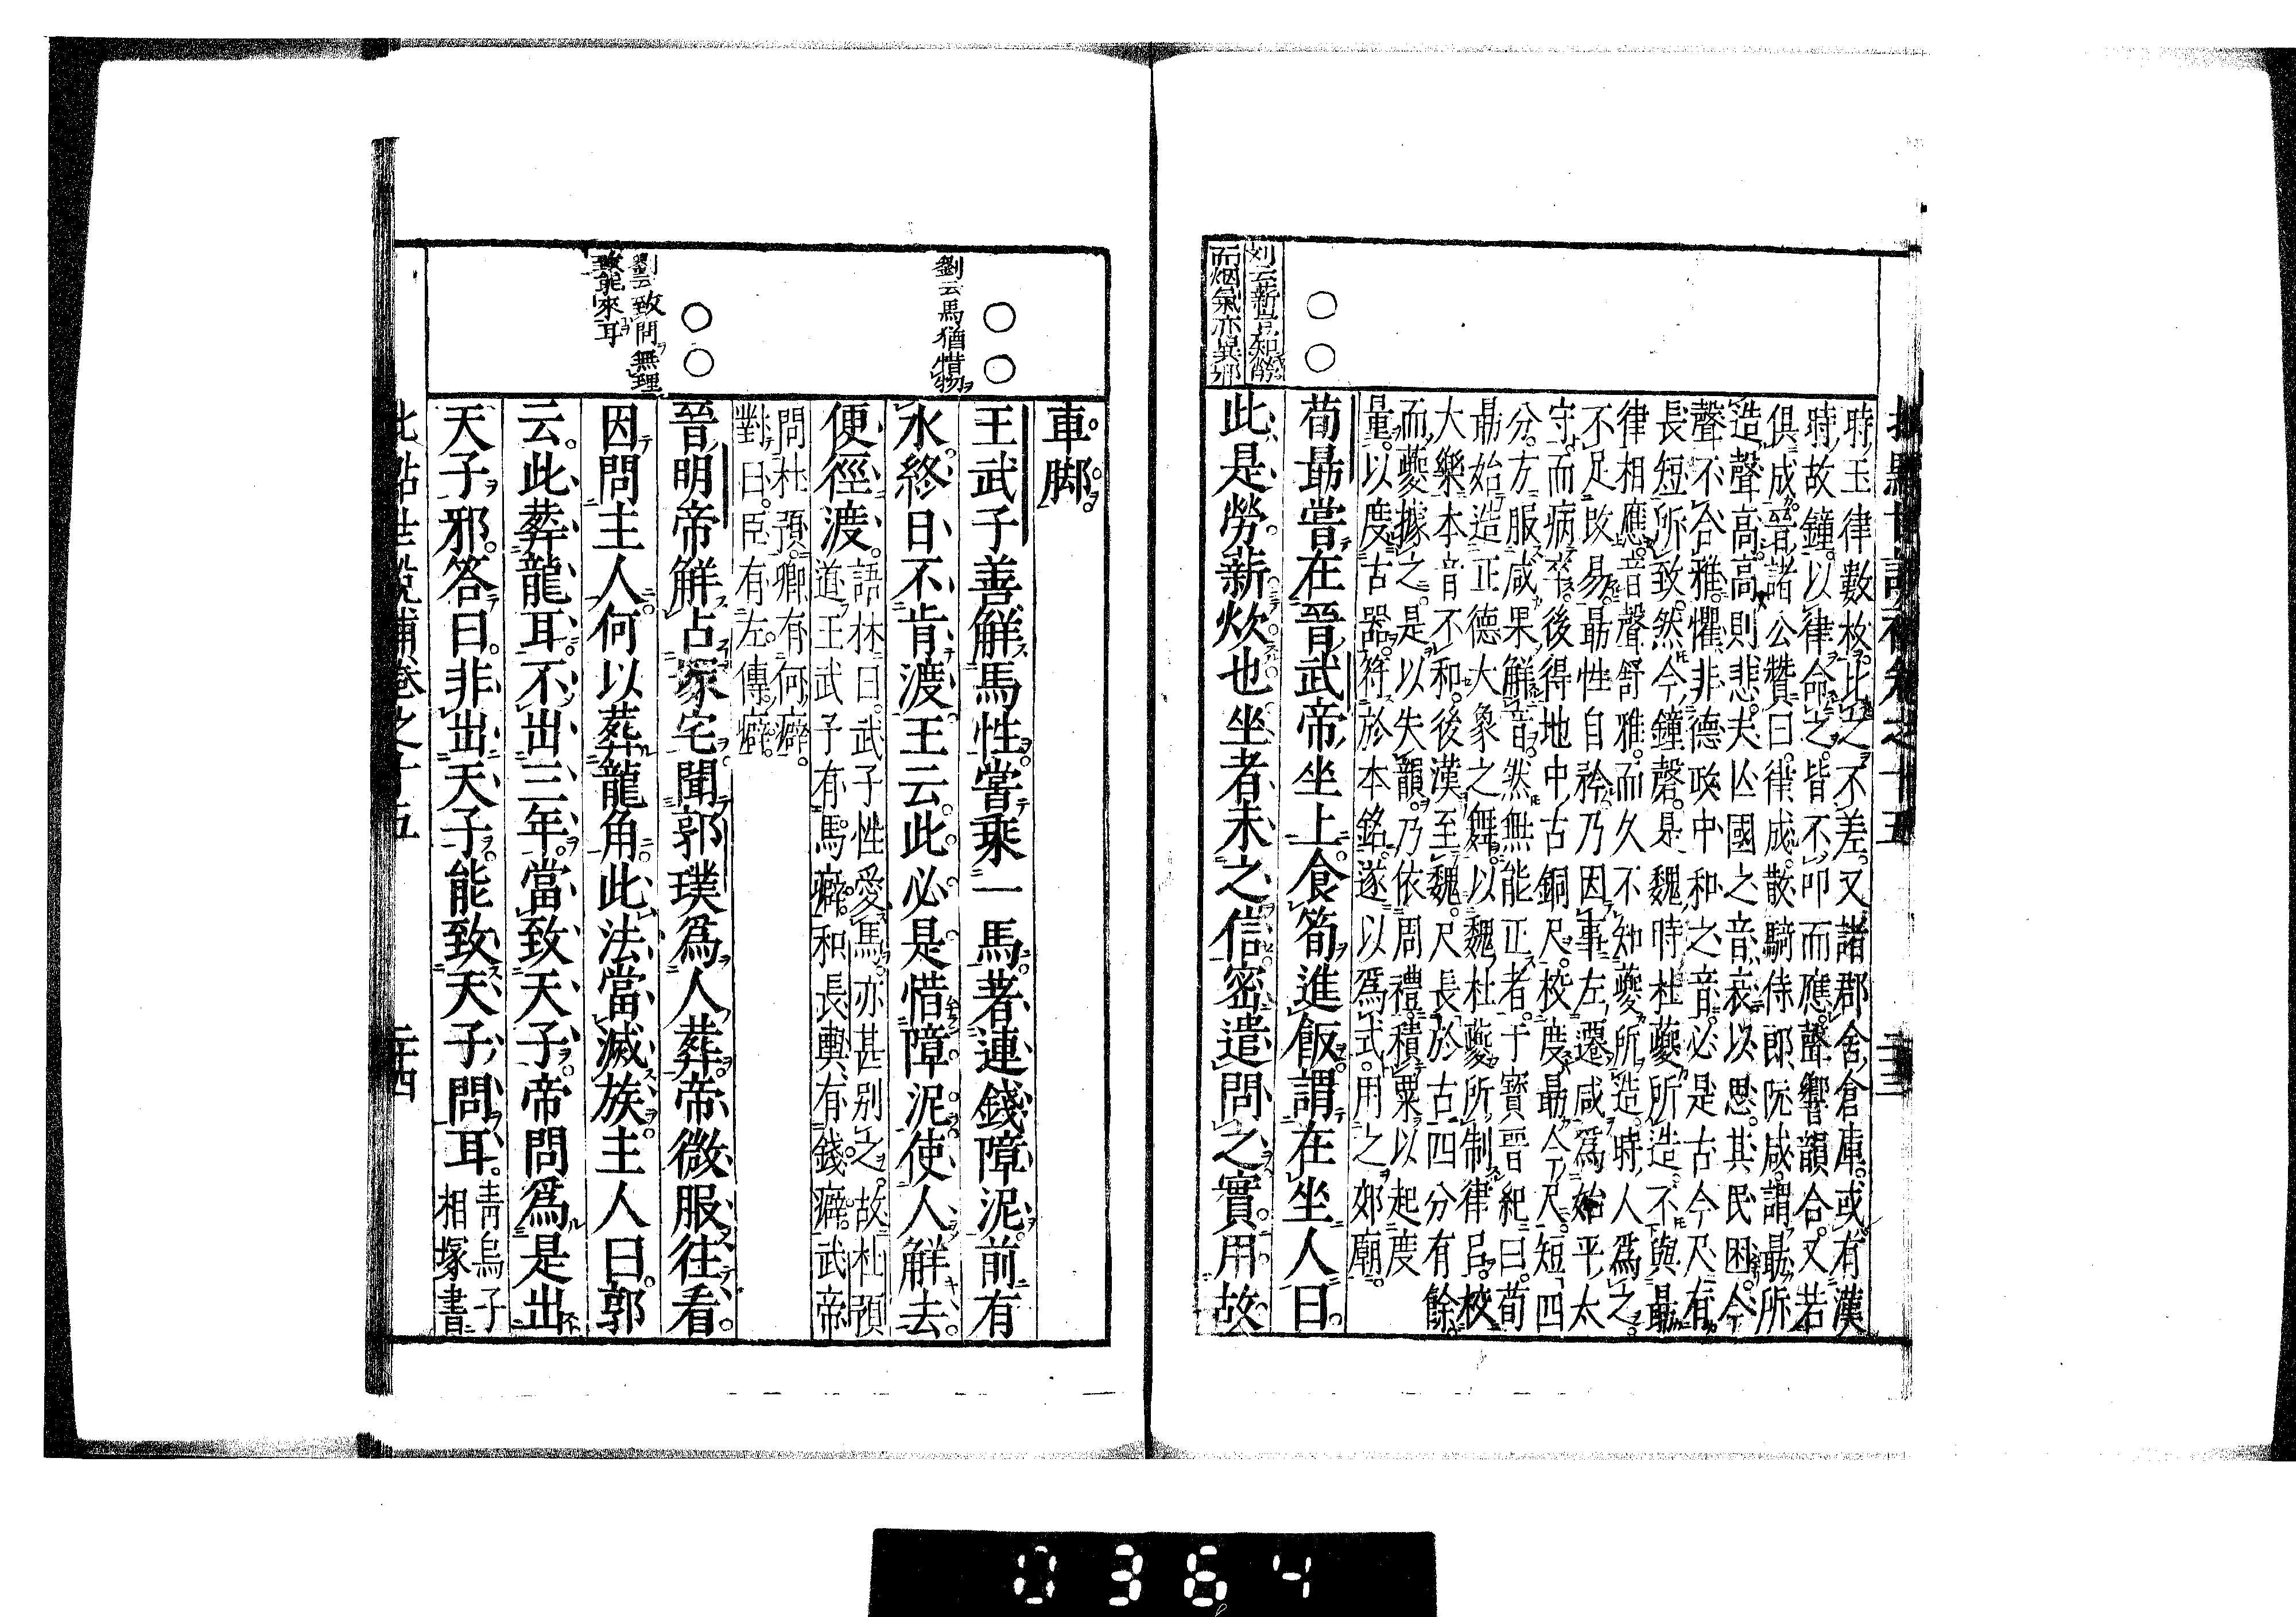 時玉律數枚比之不差又諸郡舍倉庫或有漢
時故鐘以律命之皆不叩而應聲響韻合又若
俱成晉諸公贊曰律成散騎侍郎阮咸謂勗所
造聲高高則悲夫亡國之音哀以思其民困今
聲不合雅懼非德政中和之音必是古今尺有
長短所致然今鐘磬是魏時杜夔所造不與勗
律相應音聲舒雅而久不知夔所造時人爲之
不足改易勗性自矜乃因事左遷咸爲始平太
守而病卒後得地中古銅尺校度勗今尺短四
分方服咸果解音然無能正者干寶晉紀曰荀
勗始造正德大象之舞以魏杜夔所制律呂校
大樂本音不和後漢至魏尺長於古四分有餘
而夔據之是以失韻乃依周禮積粟以起度
量以度古器符於本銘遂以爲式用之郊廟
荀勗嘗在晉武帝坐上食筍進飯謂在坐人曰
此是勞薪炊也坐者未之信密遣問之實用故
刘云薪豈知勞
而烟氣亦異邪
車脚
王武子善解馬性嘗乘一馬著連錢障泥前有
水終日不肯渡王云此必是惜障泥使人解去
便徑渡語林曰武子性愛馬亦甚別之故杜預
道王武子有馬癖和長輿有錢癖武帝
問杜預卿有何癖
對曰臣有左傳癖
晉明帝解占塚宅聞郭璞爲人葬帝微服往看
因問主人何以葬龍角此法當滅族主人曰郭
云此葬龍耳不出三年當致天子帝問爲是出
天子邪答曰非出天子能致天子問耳青烏子
相塚書
劉云馬猶惜物
劉云致問無理
致能來耳
二十四